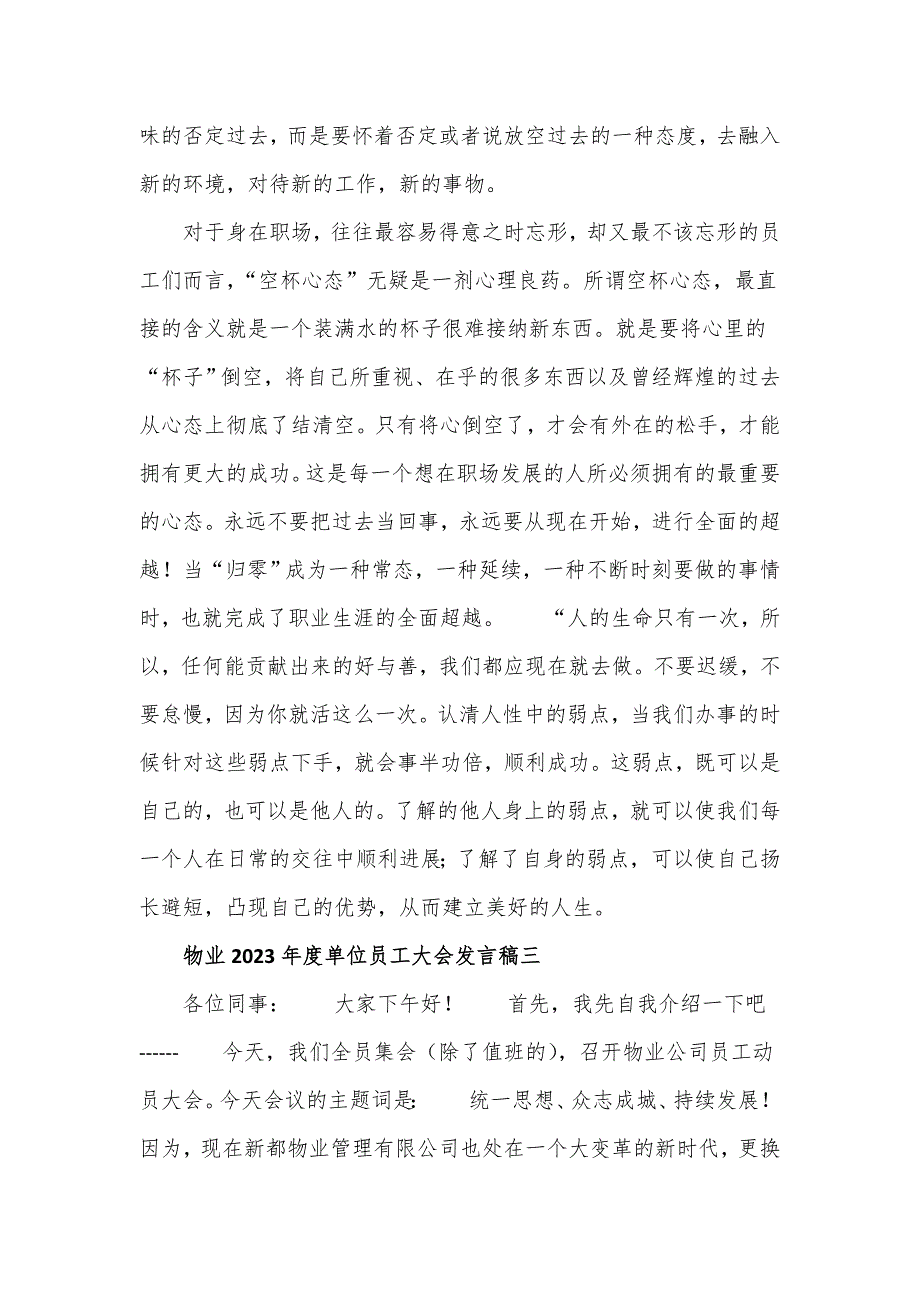 味的否定过去，而是要怀着否定或者说放空过去的一种态度，去融入
新的环境，对待新的工作，新的事物。
对于身在职场，往往最容易得意之时忘形，却又最不该忘形的员
工们而言，“空杯心态”无疑是一剂心理良药。所谓空杯心态，最直
接的含义就是一个装满水的杯子很难接纳新东西。就是要将心里的
“杯子”倒空，将自己所重视、在乎的很多东西以及曾经辉煌的过去
从心态上彻底了结清空。只有将心倒空了，才会有外在的松手，才能
拥有更大的成功。这是每一个想在职场发展的人所必须拥有的最重要
的心态。永远不要把过去当回事，永远要从现在开始，进行全面的超
越！当“归零”成为一种常态，一种延续，一种不断时刻要做的事情
时，也就完成了职业生涯的全面超越。　　“人的生命只有一次，所
以，任何能贡献出来的好与善，我们都应现在就去做。不要迟缓，不
要怠慢，因为你就活这么一次。认清人性中的弱点，当我们办事的时
候针对这些弱点下手，就会事半功倍，顺利成功。这弱点，既可以是
自己的，也可以是他人的。了解的他人身上的弱点，就可以使我们每
一个人在日常的交往中顺利进展；了解了自身的弱点，可以使自己扬
长避短，凸现自己的优势，从而建立美好的人生。
物业 2023 年度单位员工大会发言稿三
各位同事：　　大家下午好！　　首先，我先自我介绍一下吧
------　　今天，我们全员集会（除了值班的），召开物业公司员工动
员大会。今天会议的主题词是：　　统一思想、众志成城、持续发展！
因为，现在新都物业管理有限公司也处在一个大变革的新时代，更换